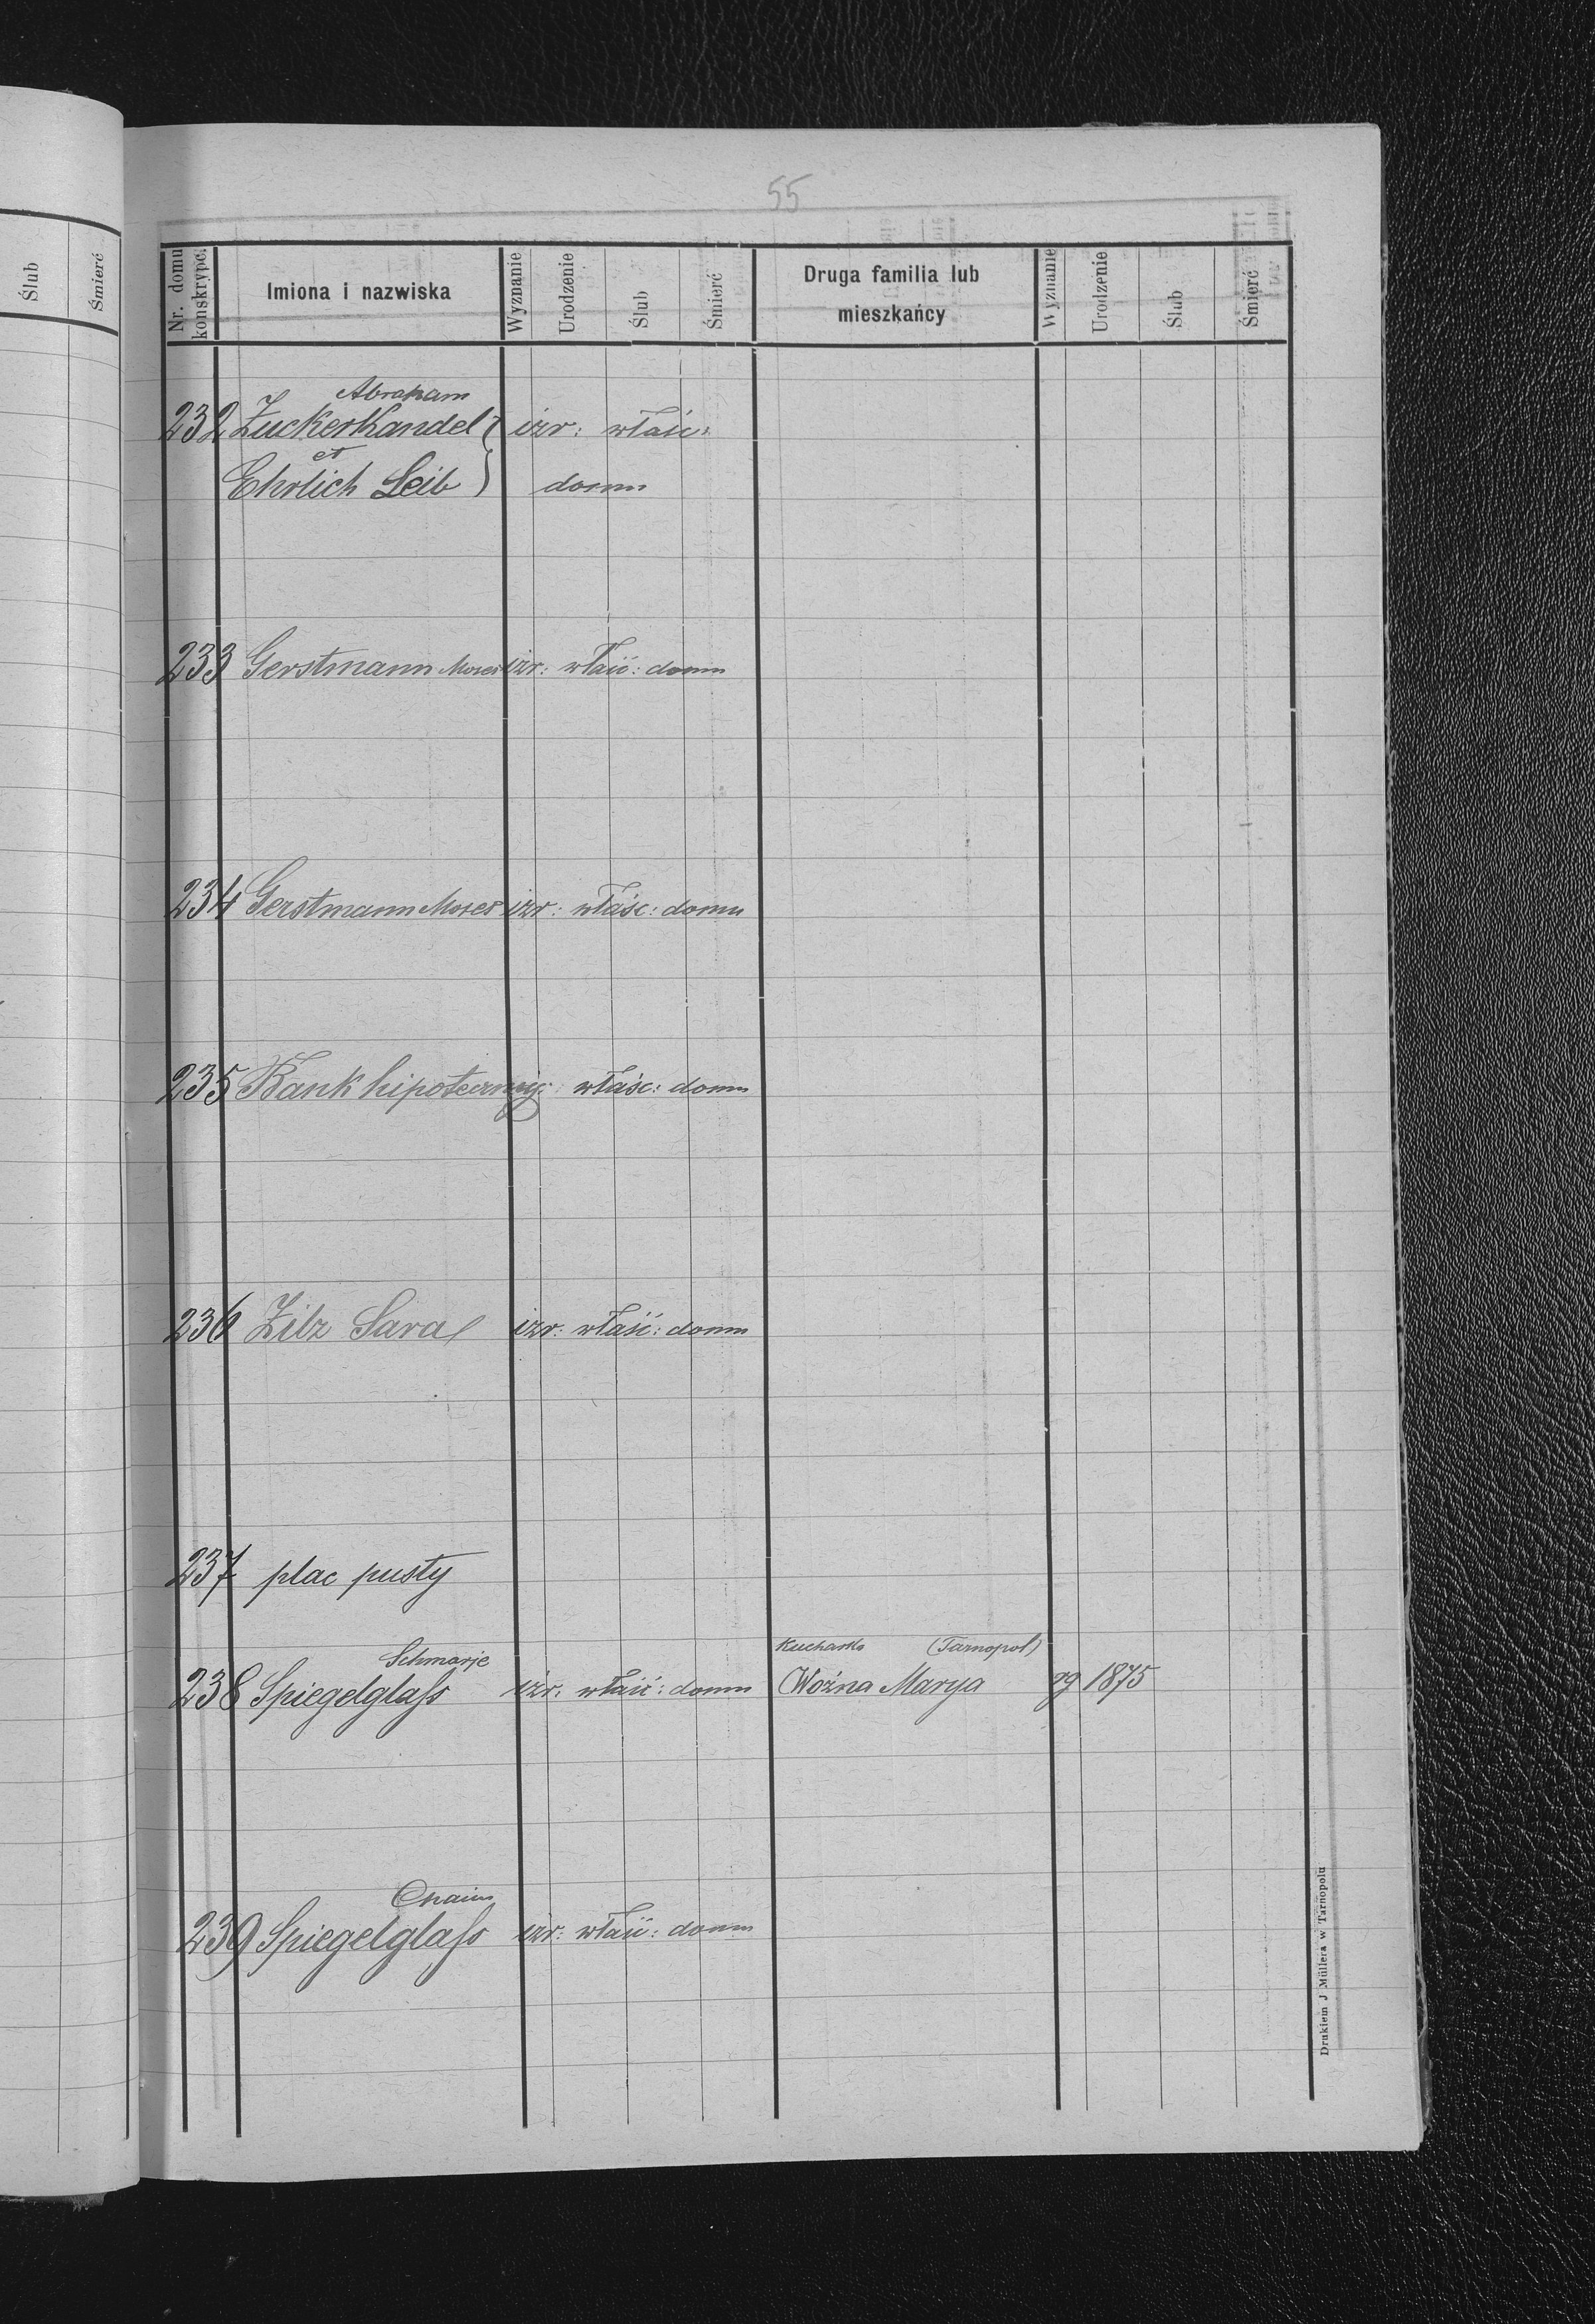 55
Ślub Śmierć
Nr. domu konskrypc. Imiona i nazwiska Wyznanie Urodzenie Ślub Śmierć Druga familia lub mieszkańcy Wyznanie Urodzenie Ślub Śmierć
Abraham
232 Zuckerkandel izr: właśc:
et
Ehrlich Leib domu
233 Gerstmann Moses izr: właśc: domu
234 Gerstmann Moses izr: właśc: domu
235 Bank hipoteczny właśc: domu
236 Zilz Sara izr: właśc: domu
237 plac pusty
Schmarje Kucharka (Tarnopol)
238 Spiegelglaſs izr: właśc: domu Woźna Marya gg 1875
Chaim
239 Spiegelglaſs izr: właśc: domu
Drukiem J Müllera w Tarnopolu